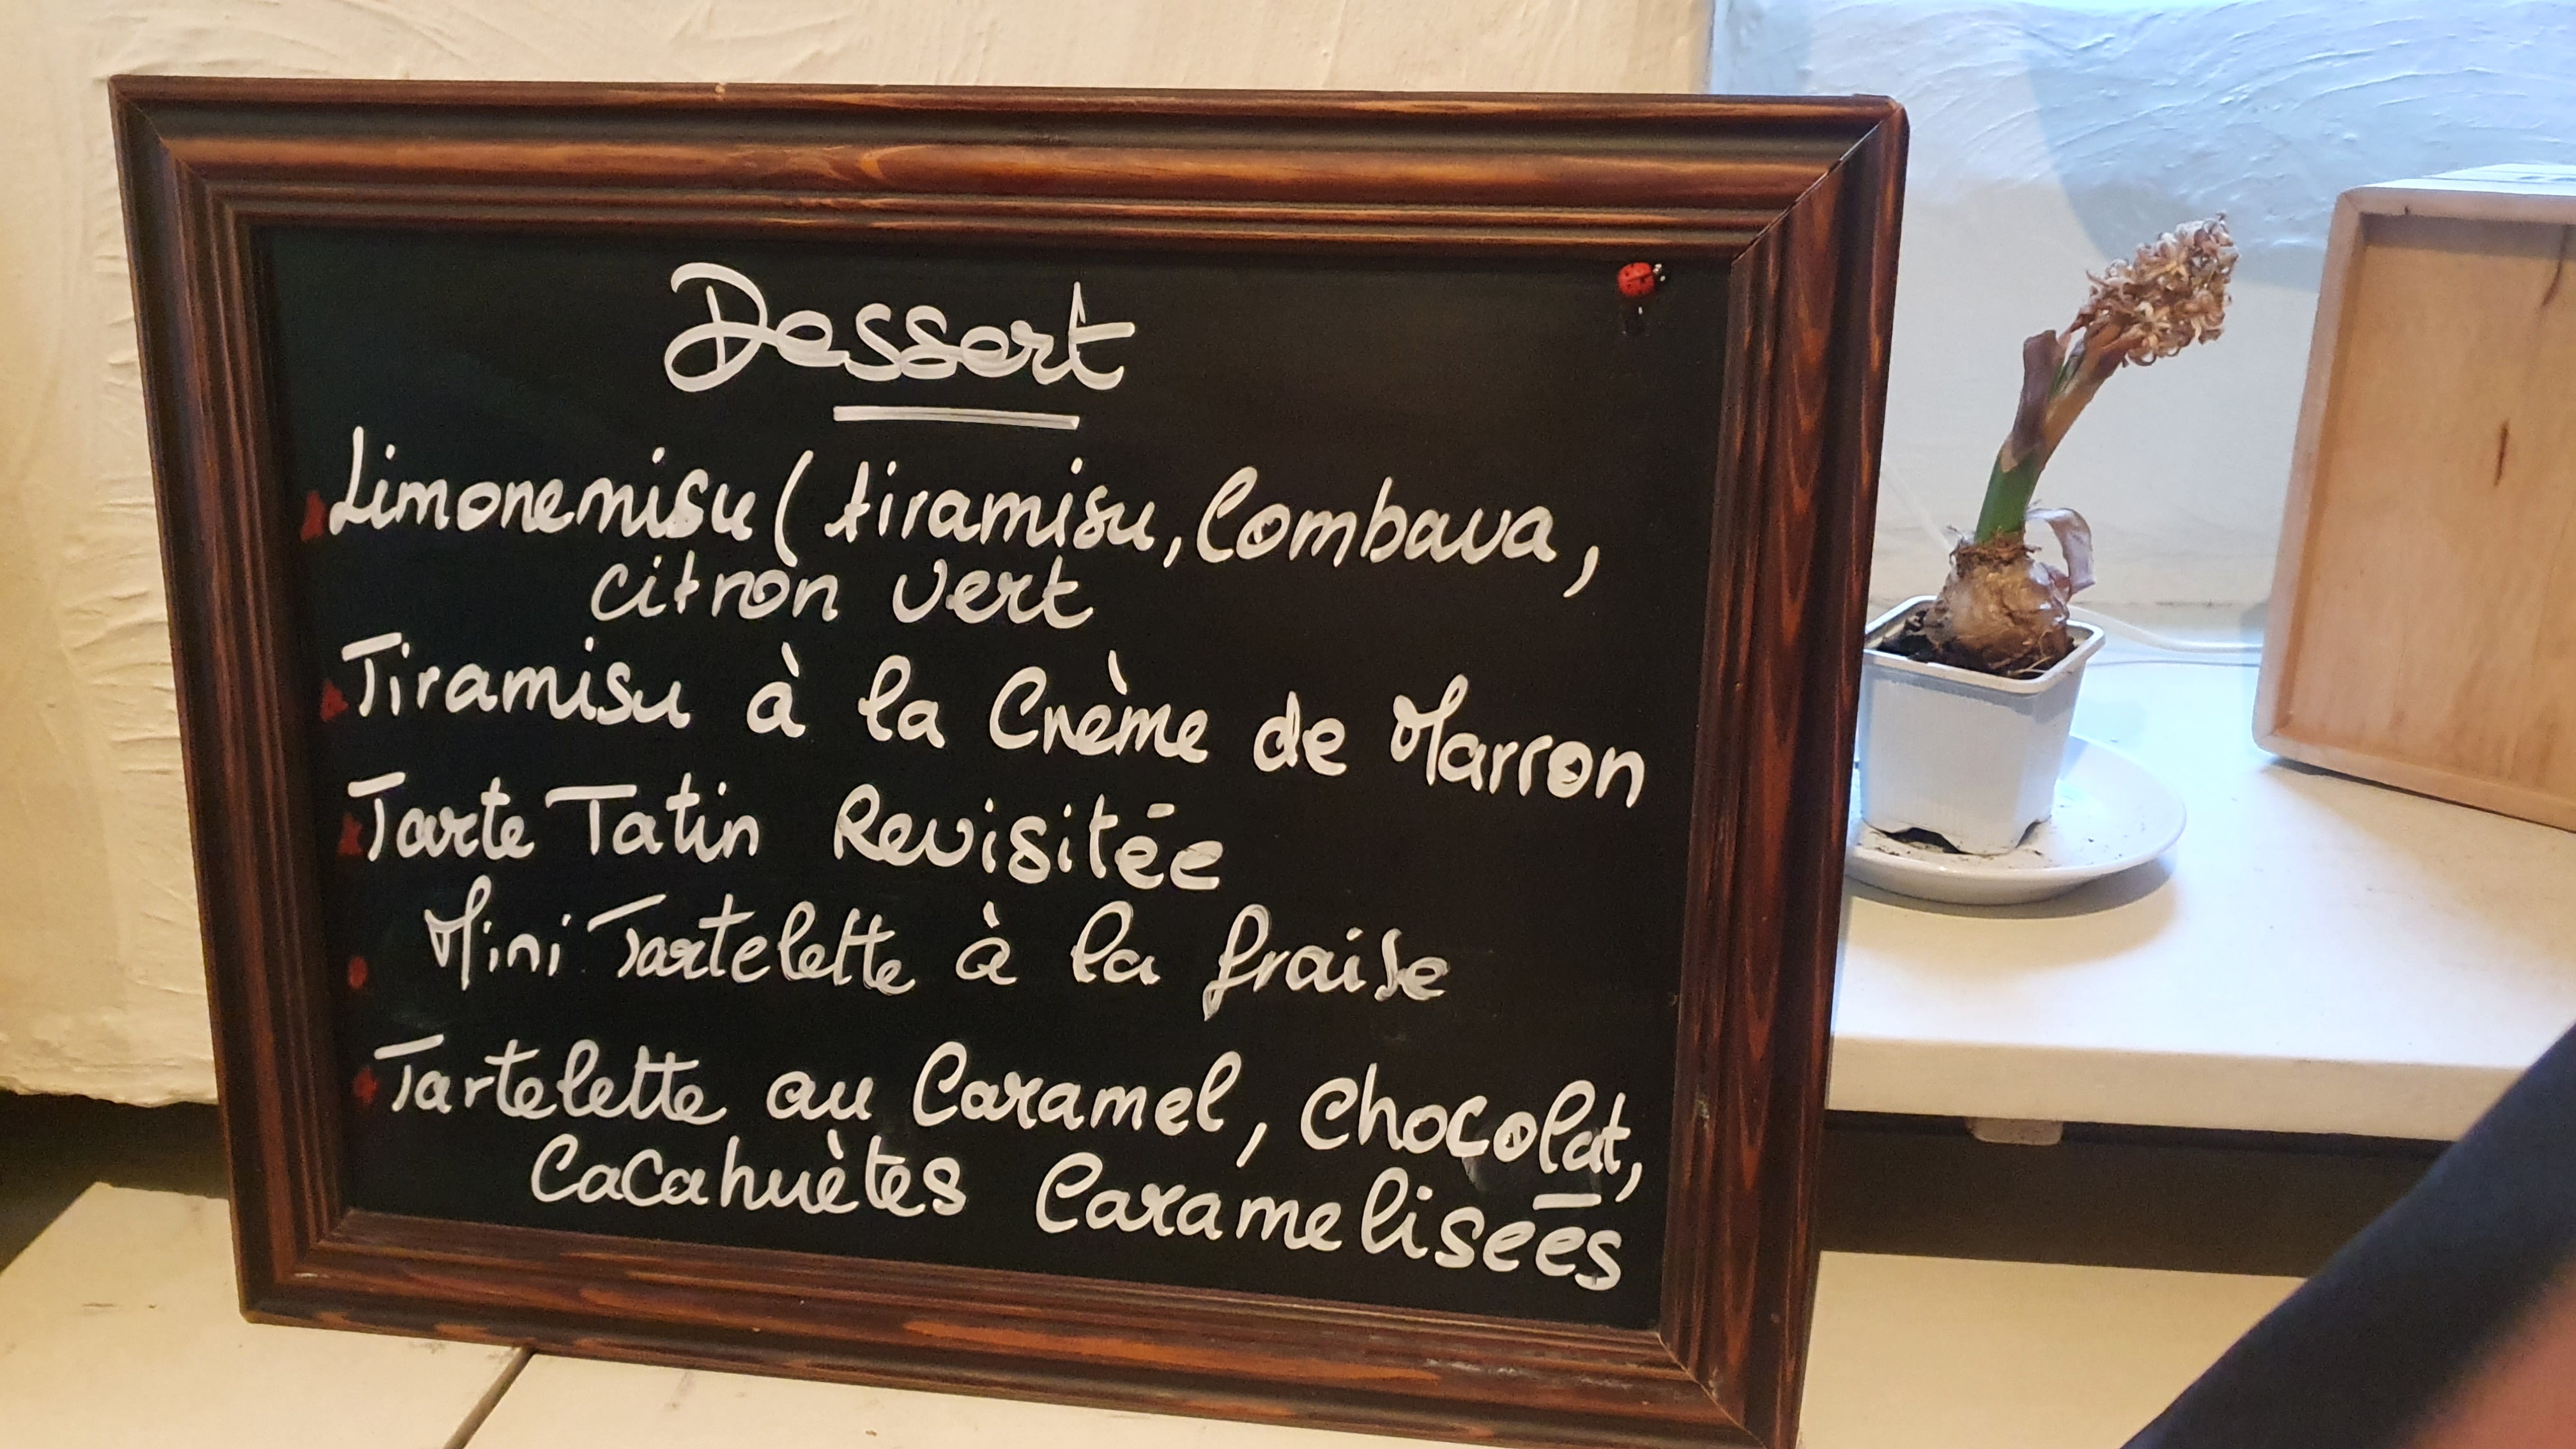 Dessert
Limonemisu ( tiramisu, Combava,
citron vert
Tiramisu à la Crème de Marron
Tarte Tatin Revisitée
Mini Tartelette à la fraise
Tartelette au Caramel, Chocolat,
Cacahuètes Caramelisées